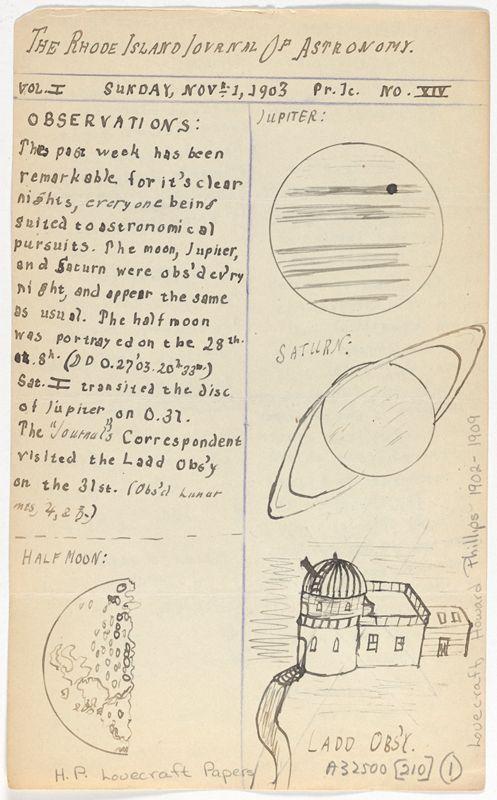 THE RHODE ISLAND JOURNAL OF ASTRONOMY.
VOL. I SUNDAY, NOVR. 1, 1903 Pr. 1c. NO. XIV
OBSERVATIONS:
This past week has been
remarkable for it's clear
nights, everyone being
suited to astronomical
pursuits. The moon, Jupiter,
and Saturn were obs'd ev'ry
night, and appear the same
as usual. The half moon
was portrayed on the 28th.
at 8h.
Sat. I transited the disc
of Jupiter on O.31.
The "Journal's" Correspondent
visited the Ladd Obs'y
on the 31st. (Obs'd Lunar
HALF MOON:
H.P. Lovecraft Papers
JUPITER:
SATURN:
LADD OBS'Y.
A32500 [210] 1
Lovecraft, Howard Phillips 1902-1909